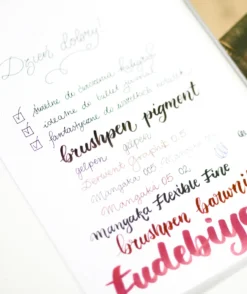 Dzień dobry!
świetne do ćwiczenia kaligrafii
idealne do bullet journal
fantastyczne do wszelkich notatek
brushpen pigment
gelpen gelpen
Derwent Graphik 0.5
Mangaka 005
Mangaka 05 02
mangaka Flexible Fine
brushpen barwnik
tudebiy